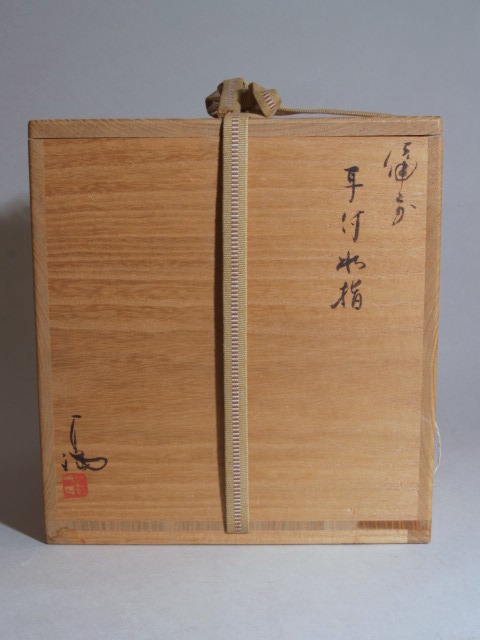 備前
耳付水指